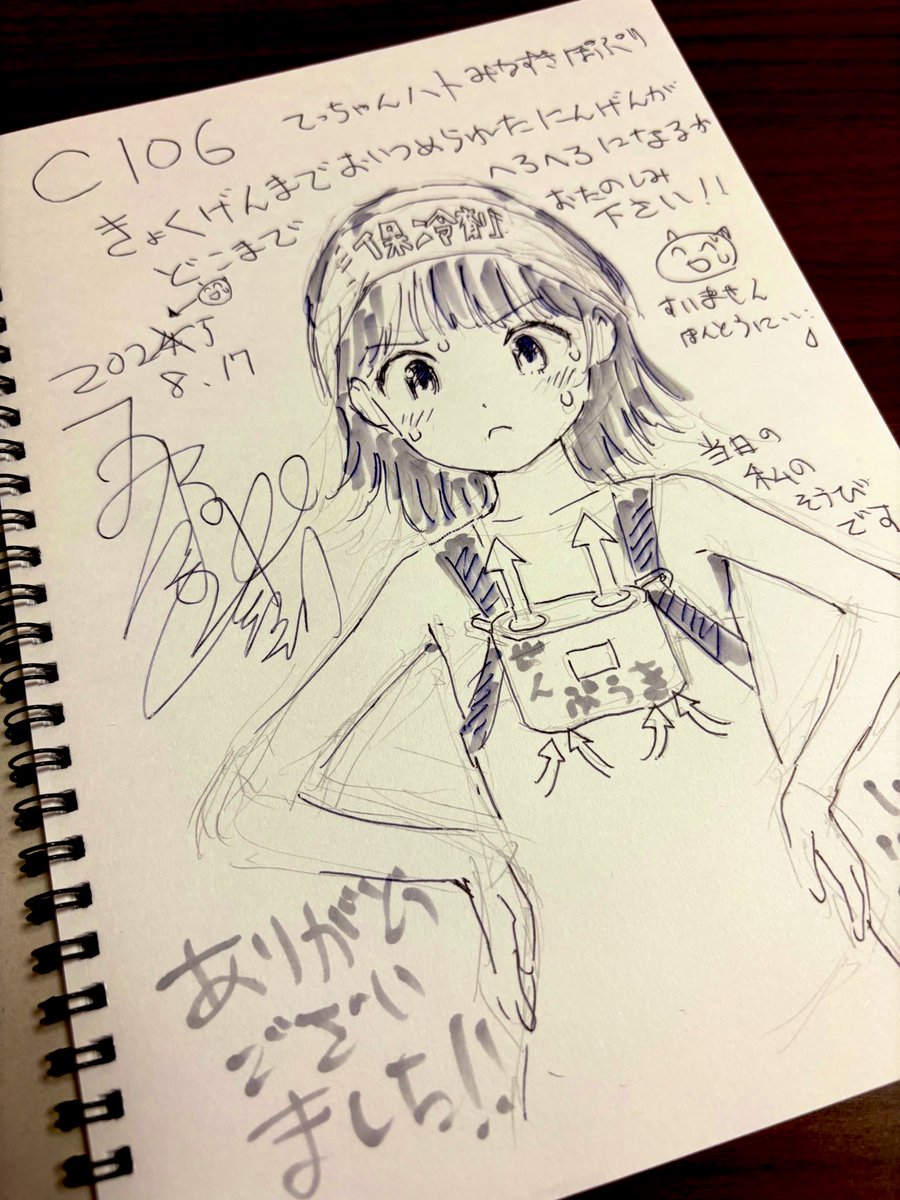 C106
てっちゃんハト みちずき ぽぷり
きょくげんまでおいつめられたにんげんが
どこまで
へろへろになるか
おたのしみ
下さい!!
すいません
ほんとうに…
2025
8.17
保冷剤
当日の
私の
そうび
です
せんぷうき
ありがとう
ござい
ました!!